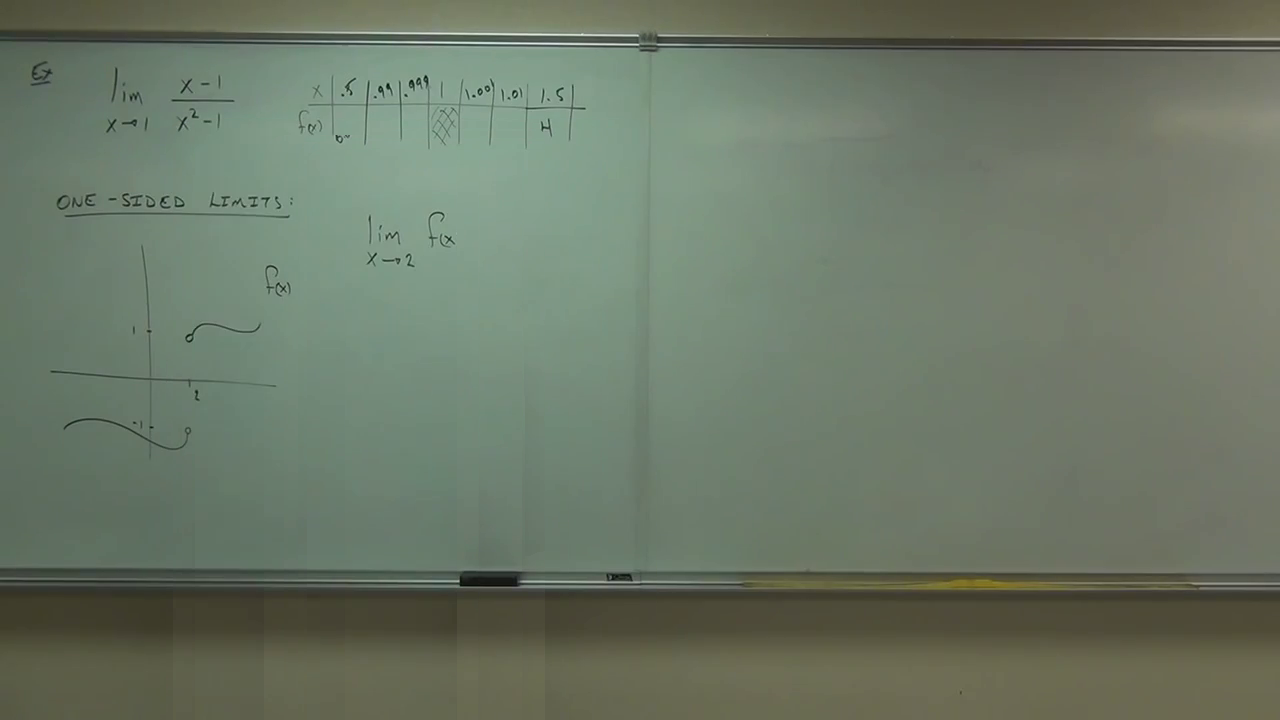 Ex lim x→1 x-1 / x²-1
x .5 .99 .999 1 1.001 1.01 1.5
f(x) 4
ONE-SIDED LIMITS:
lim x→2 f(x
f(x)
1
2
-1